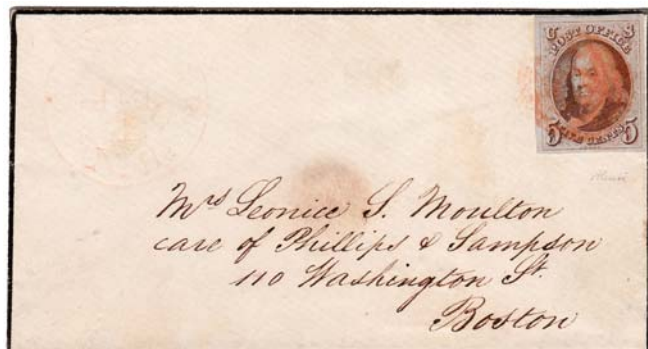 U S
POST OFFICE
5 FIVE CENTS 5
Mrs Leonice S. Moulton
care of Phillips & Sampson
110 Washington St.
Boston